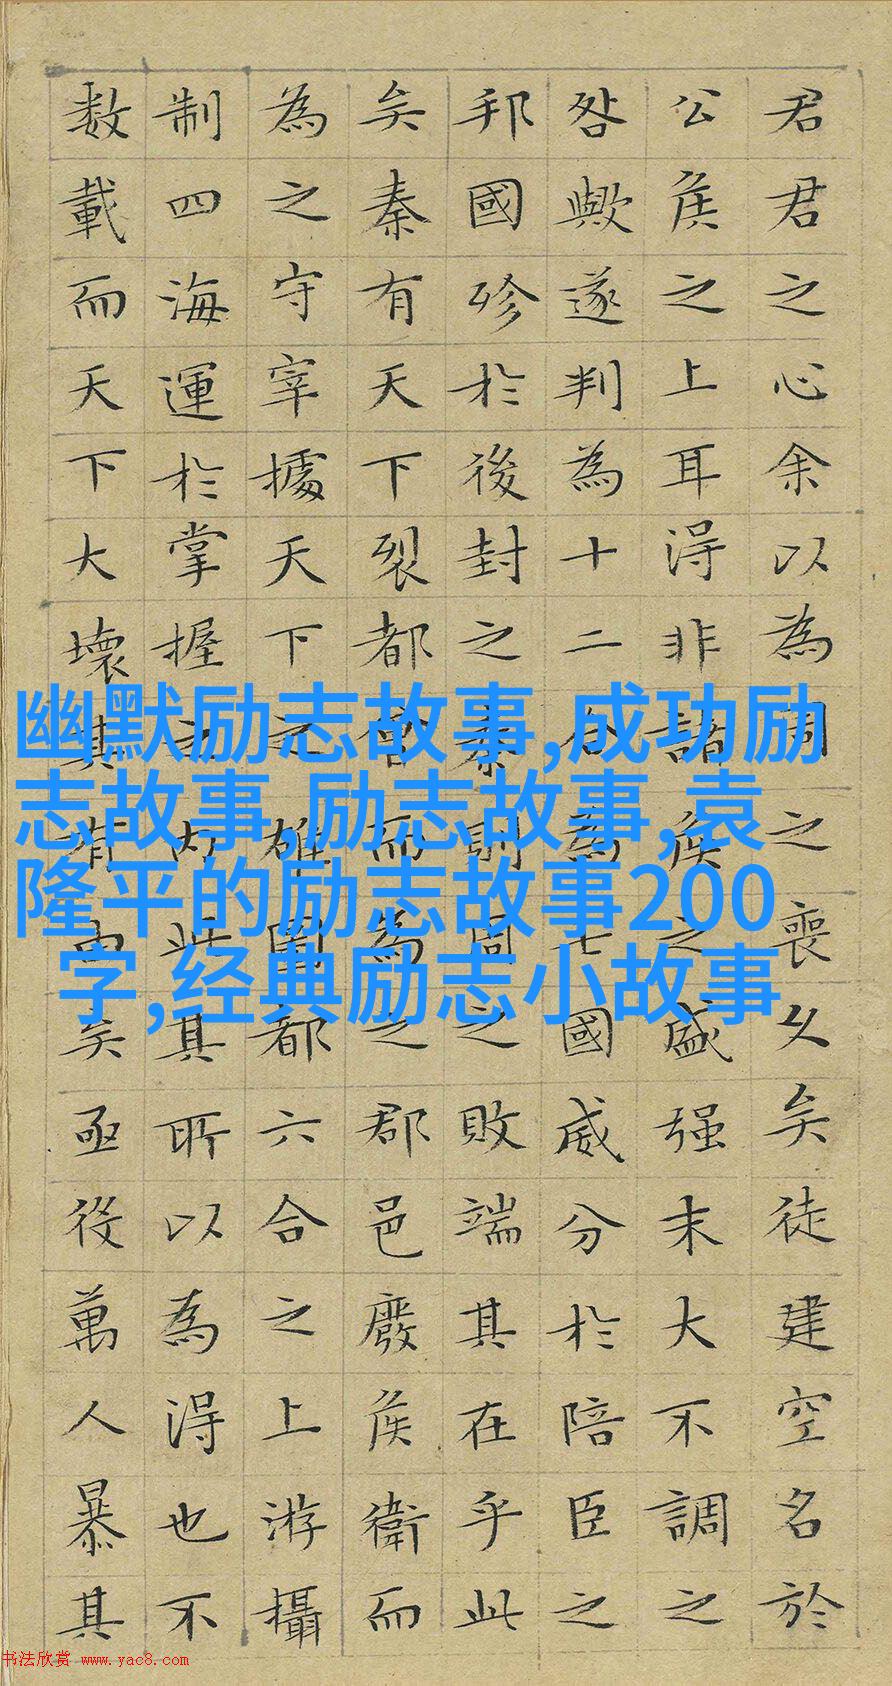 君君之心余以為周之喪久矣徒建空名於
公侯之上耳得非諸侯之盛强末大不調之
咎歟遂判為十二合為七國威分於陪臣之
邦國殄於後封之秦則周之敗端其在乎此
矣秦有天下裂都會而為之郡邑廢侯衛而
為之守宰據天下之雄圖都六合之上游攝
制四海運於掌握之内此其所以為得也不
数載而天下大壞其有由矣亟役萬人暴其
幽默励志故事,成功励
志故事,励志故事,袁
隆平的励志故事200
字,经典励志小故事
书法欣赏 www.yac8.com